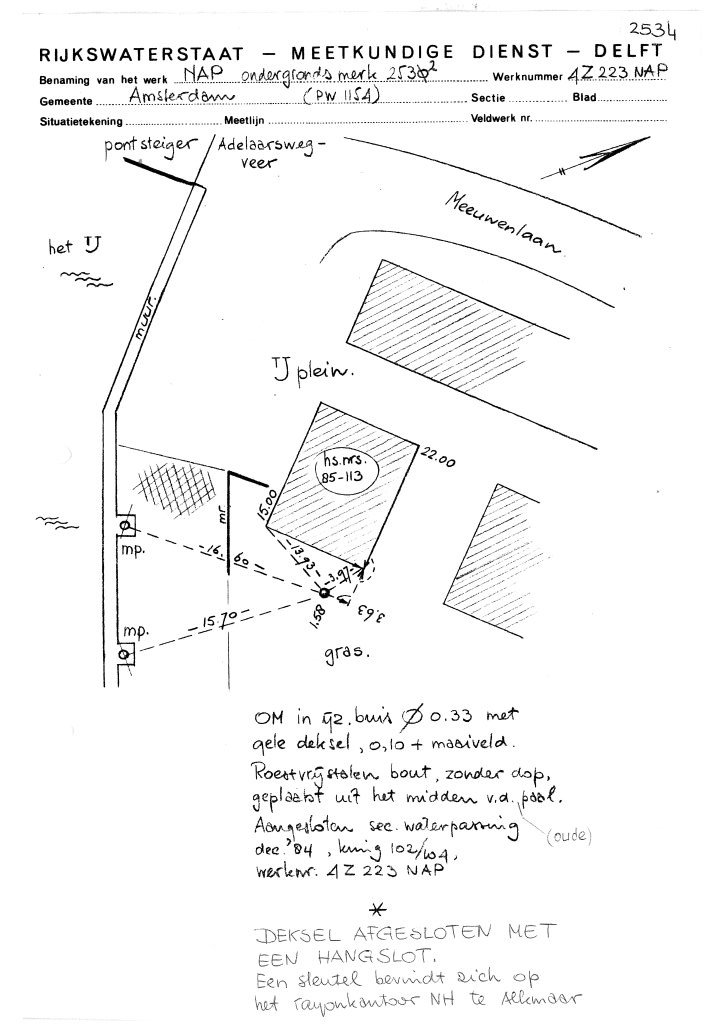 2534
RIJKSWATERSTAAT – MEETKUNDIGE DIENST – DELFT
Benaming van het werk NAP ondergronds merk Werknummer 4Z 223 NAP
Gemeente Amsterdam (PW 1154) Sectie Blad
Situatietekening Meetlijn Veldwerk nr.
pontsteiger
Adelaarsweg-
veer
Meeuwenlaan
het IJ
muur.
IJ plein.
hs.nrs.
85-113
22.00
15.00
mr
mp.
16.60
13.93
3.97
3.63
1.58
15.70
mp.
gras.
OM in ijz. buis Ø 0.33 met
gele deksel, 0,10 + maaiveld.
Roestvrijstalen bout, zonder dop,
geplaatst uit het midden v.d. paal.
(oude)
Aangesloten sec. waterpassing
dec. '84, kring 102/104,
werknr. 4Z 223 NAP
*
DEKSEL AFGESLOTEN MET
EEN HANGSLOT.
Een sleutel bevindt zich op
het rayonkantoor NH te Alkmaar